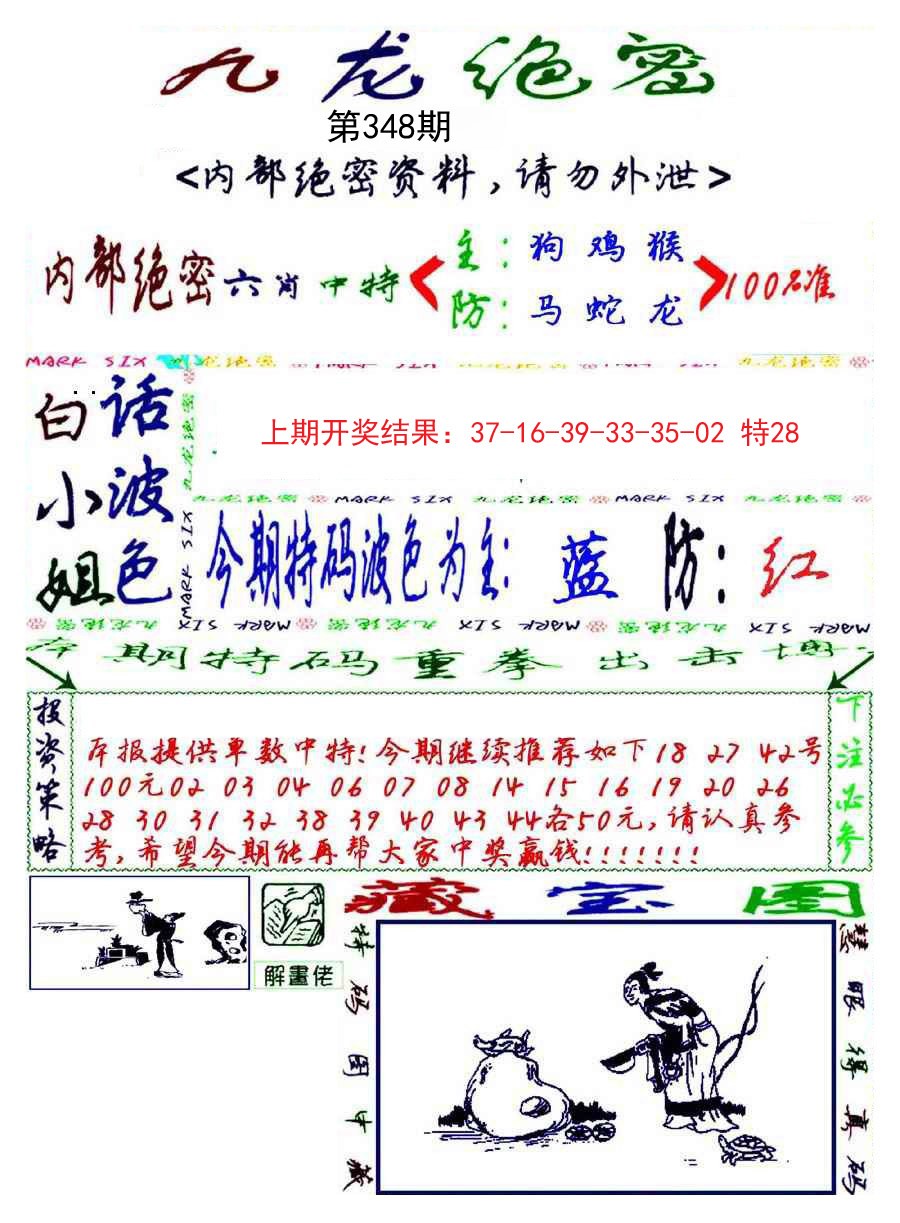 九龙绝密
第348期
<内部绝密资料,请勿外泄>
内部绝密六肖中特
主:狗鸡猴
防:马蛇龙
100%准
MARK SIX 九龙绝密
白话
小波
姐色
上期开奖结果：37-16-39-33-35-02 特28
九龙绝密 MARK SIX 九龙绝密 MARK SIX 九龙绝密
今期特码波色为主: 蓝 防: 红
九龙绝密 MARK SIX 九龙绝密 MARK SIX 九龙绝密 MARK SIX
本期特码重拳出击
投资策略
本报提供单数中特!今期继续推荐如下18 27 42号
100元02 03 04 06 07 08 14 15 16 19 20 26
28 30 31 32 38 39 40 43 44各50元,请认真参
考,希望今期能再帮大家中奖赢钱!!!!!!!
下注必参
藏宝图
解畫佬
特码图中藏
慧眼得真码